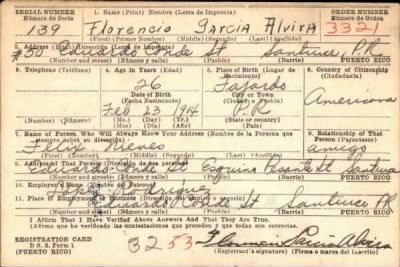 SERIAL NUMBER 1. Name (Print) Nombre (Letra de Imprenta) ORDER NUMBER
Número de Serie Número de Orden
139 Florencio Garcia Alvira 3321
(First) (Primer Nombre) (Middle) (Segundo) (Last) (Apellido)
2. Address (Print) Dirección (Letra de Imprenta)
#50 Eduardo Conde St Santurce, P.R.
(Number and street) (Número y calle) (Town) (Pueblo) (Barrio) (Barrio) PUERTO RICO
3. Telephone (Teléfono) 4. Age in Years (Edad) 5. Place of Birth (Lugar de Nacimiento) 6. Country of Citizenship (Ciudadanía)
26 Fajardo
Date of Birth City or Town
(Fecha Nacimiento) (Ciudad o Pueblo) Americana
Feb 23 1914 P.R.
(Number) (Número) (Mo.) (Day) (Yr.) (State or country)
(Mes) (Día) (Año) (Estado o país)
7. Name of Person Who Will Always Know Your Address (Nombre de la Persona que siempre sabrá su dirección) 8. Relationship of That Person (Parentesco)
Nieves amigo
(First) (Primer Nombre) (Middle) (Segundo) (Last) (Apellido)
9. Address of That Person (Dirección de esa persona)
Eduardo Conde St Esquina St Santurce
(Number and street) (Número y calle) (Town) (Pueblo) (Barrio) (Barrio) PUERTO RICO
10. Employer's Name (Nombre del Patrono)
Rodriguez
11. Place of Employment or Business (Dirección del Empleo o Negocio)
Eduardo Conde St Santurce PR
(Number and street) (Número y calle) (Town) (Pueblo) (Barrio) (Barrio) PUERTO RICO
I Affirm That I Have Verified Above Answers and That They are True.
(Afirmo que he verificado las anteriores contestaciones y que son ciertas.)
REGISTRATION CARD
D. S. S. Form 1
(PUERTO RICO)
3253 Garcia Alvira
Registrant's signature (Firma o marca del Registrado)